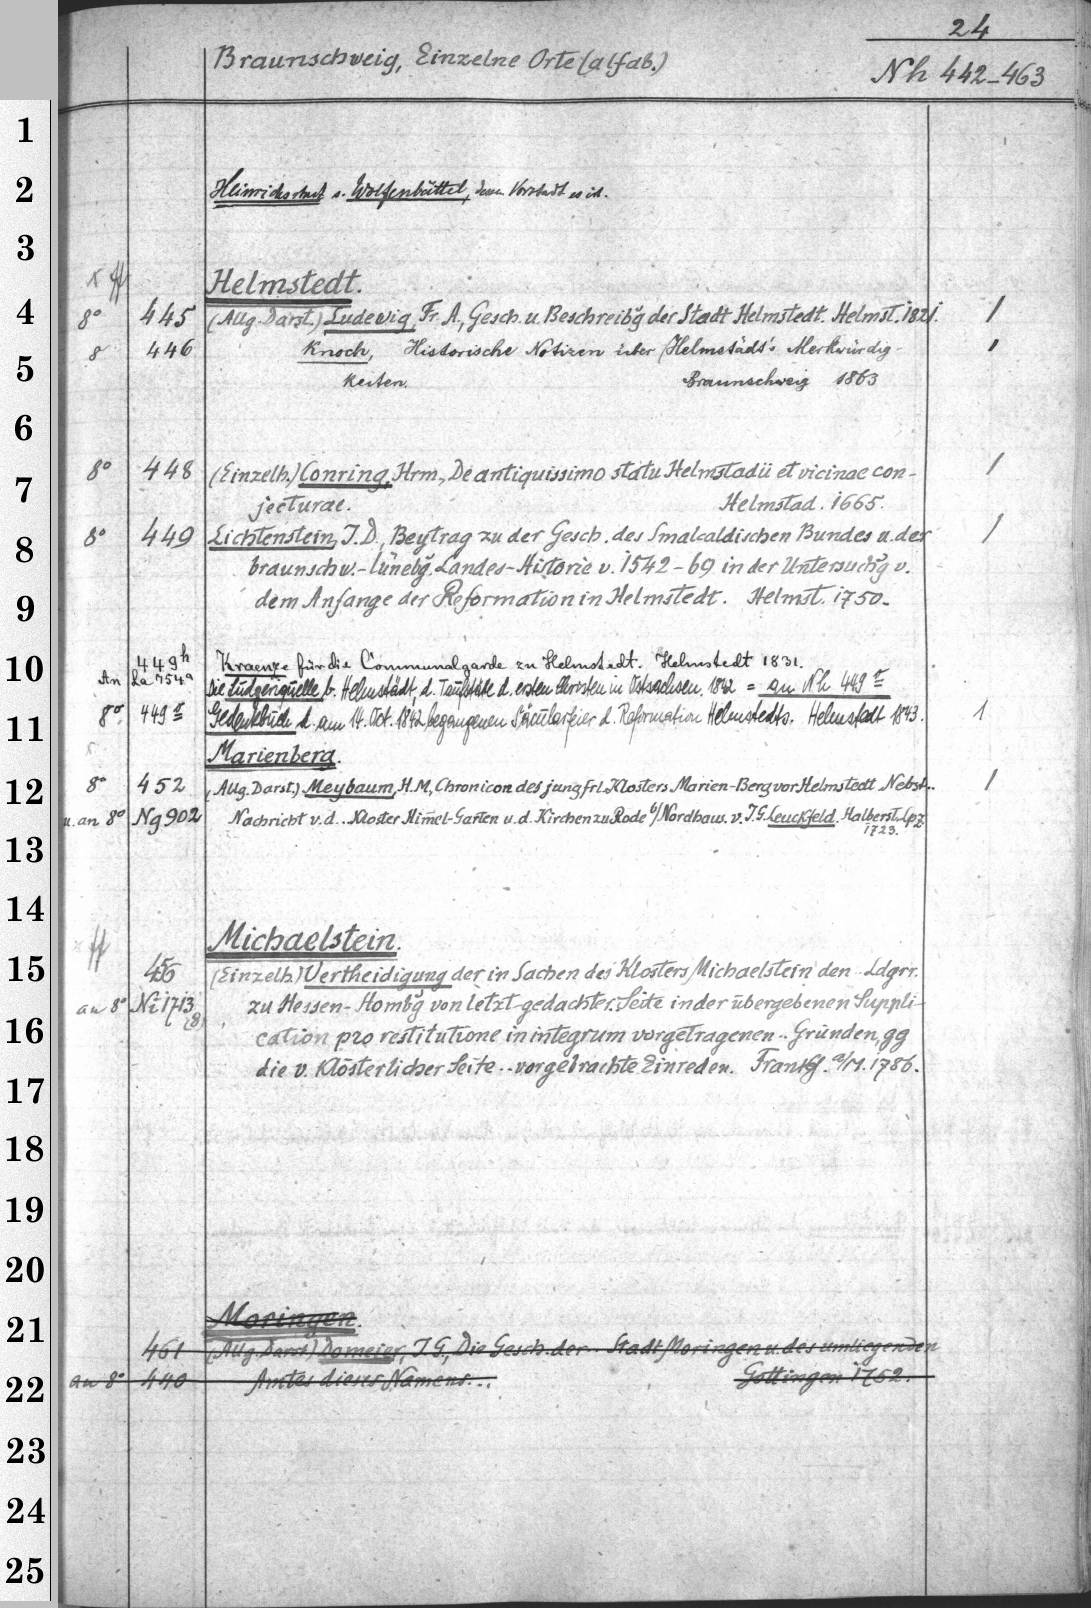 24
Braunschweig, Einzelne Orte (alfab.)
Nh 442-463
1
2
Heinrichsstadt s. Wolfenbüttel, deren Vorstadt es ist.
3
Helmstedt.
4
8° 445 (Allg. Darst.) Ludewig, Fr. A., Gesch. u. Beschreibg der Stadt Helmstedt. Helmst. 1821. 1
8 446 Knoch, Historische Notizen über Helmstädt's Merkwürdig-
5
keiten. Braunschweig 1863
6
8° 448 (Einzelh.) Conring, Hrm., De antiquissimo statu Helmstadii et vicinae con- 1
7
jecturae. Helmstad. 1665.
8° 449 Lichtenstein, J. D., Beytrag zu der Gesch. des Smalcaldischen Bundes u. der 1
8
braunschw.-lünebg. Landes-Historie v. 1542-69 in der Untersuchg v.
9
dem Anfange der Reformation in Helmstedt. Helmst. 1750.
449h Kraenze für die Communalgarde zu Helmstedt. Helmstedt 1831.
10
An La 754a Die Ludgeriquelle b. Helmstädt, d. Taufstäte d. ersten Christen in Ostsachsen, 1842 = an Nh 449r
8°. 449r Gedenkbuch d. am 14. Oct. 1842 begangenen Säcularfeier d. Reformation Helmstedts. Helmstedt 1843. 1
11
Marienberg.
12
8° 452 (Allg. Darst.) Meybaum, H. M., Chronicon des jungfrl. Klosters Marien-Berg vor Helmstedt Nebst.. 1
u. an 8° Ng 902 Nachricht v. d.. Kloster Him̄el-Garten u. d. Kirchen zu Rode b/Nordhaus. v. J. G. Leuckfeld. Halberst. Lpz
1723.
13
14
Michaelstein.
15
456 (Einzelh.) Vertheidigung der in Sachen des Klosters Michaelstein den.. Ldgrr.
an 8° Ni 1713 (8) zu Hessen-Hombg von letzt gedachter.. Seite in der übergebenen Suppli-
16
cation pro restitutione in integrum vorgetragenen.. Gründen, gg
die v. Klösterlicher Seite.. vorgebrachte Einreden. Frankf. a/M. 1786.
17
18
19
20
21
Moringen.
461 (Allg. Darst.) Domeier, J. G., Die Gesch. der.. Stadt Moringen u. des umliegenden
22
an 8° 440 Amtes dieses Namens... Göttingen 1752.
23
24
25